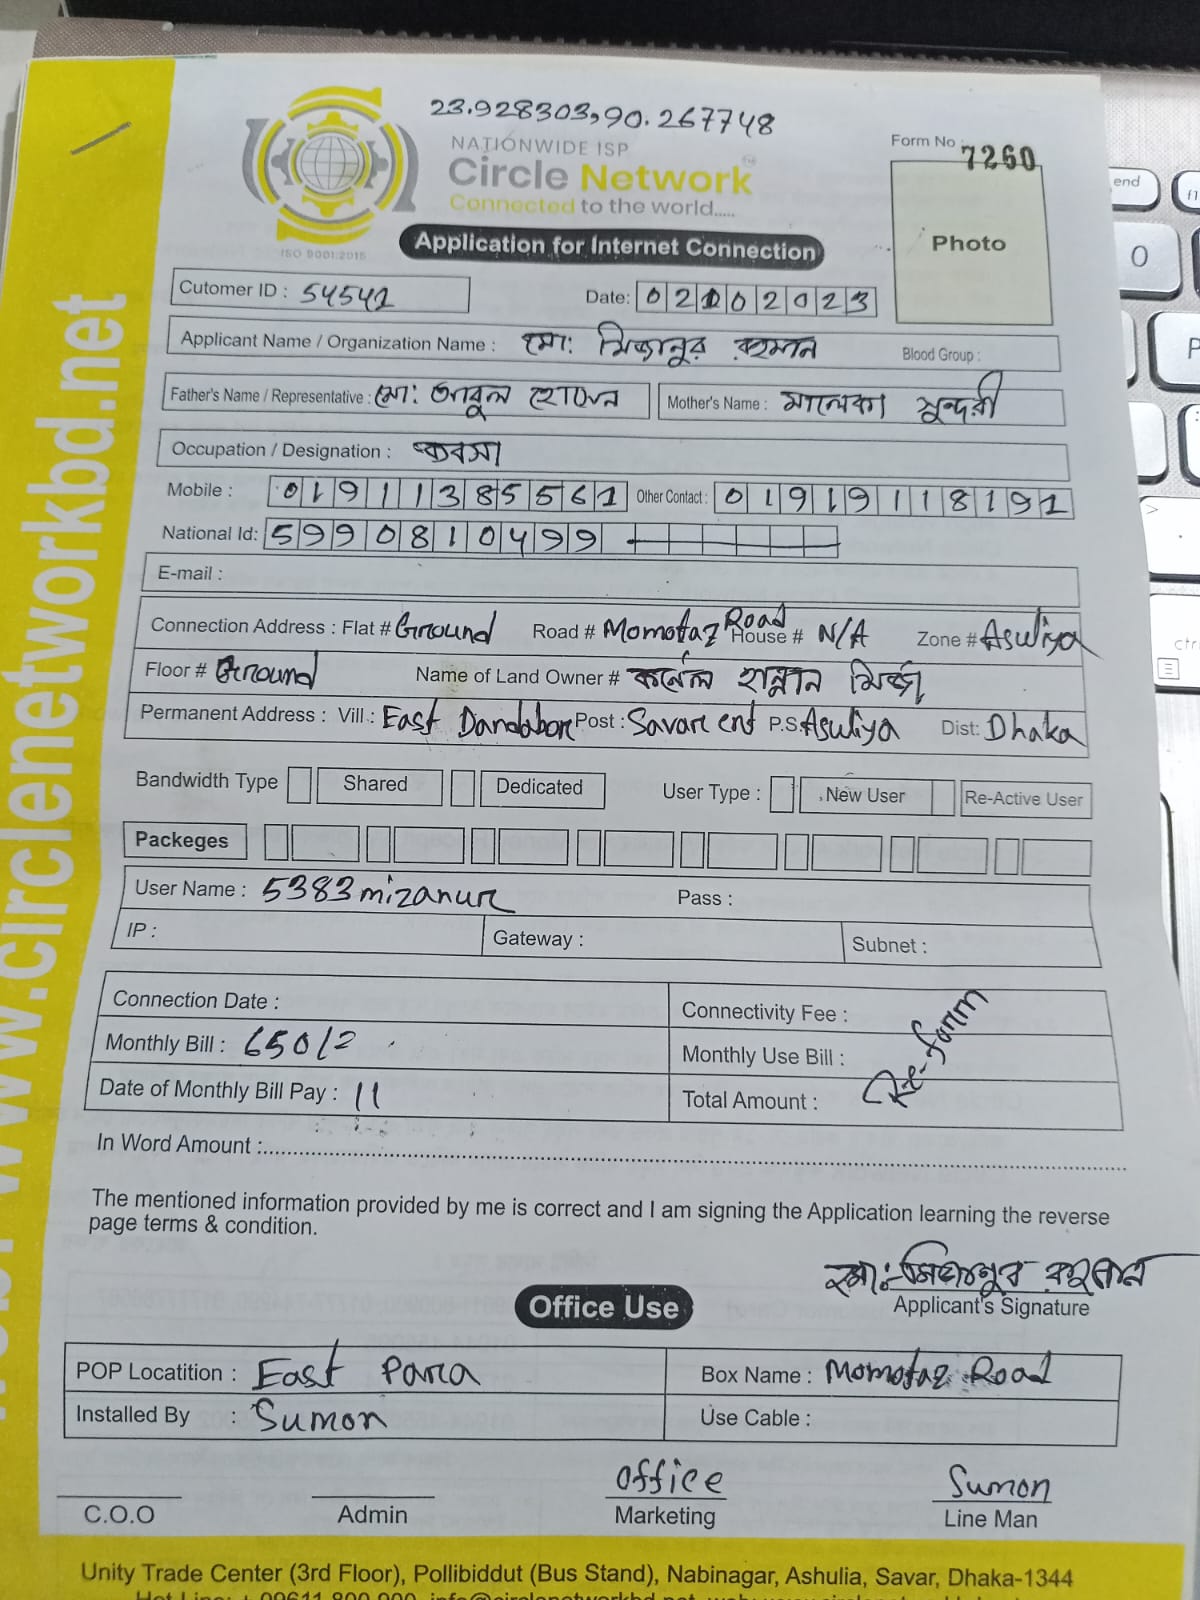 23.928303,90.267748
NATIONWIDE ISP
Circle Network
Connected to the world.....
ISO 9001:2015
Form No : 7260
Photo
Application for Internet Connection
Cutomer ID : 54541
Date: 02102023
Applicant Name / Organization Name : মো: মিজানুর রহমান Blood Group :
Father's Name / Representative : মো: আবুল হোসেন Mother's Name : মালেকা সুন্দরী
Occupation / Designation : ব্যবসা
Mobile : 01911385561 Other Contact : 01919118191
National Id: 5990810499
E-mail :
Connection Address : Flat # Ground Road # Momotaz Road House # N/A Zone # Asuliya
Floor # Ground Name of Land Owner # কর্নেল হান্নান মির্জা
Permanent Address : Vill.: East Dandabor Post : Savar ent P.S. Asuliya Dist: Dhaka
Bandwidth Type Shared Dedicated User Type : New User Re-Active User
Packeges
User Name : 5383mizanur Pass :
IP : Gateway : Subnet :
Connection Date : Connectivity Fee :
Monthly Bill : 650/2 Monthly Use Bill :
Re-form
Date of Monthly Bill Pay : 11 Total Amount :
In Word Amount :
The mentioned information provided by me is correct and I am signing the Application learning the reverse
page terms & condition.
মো: মিজানুর রহমান
Applicant's Signature
Office Use
POP Locatition : East Para Box Name : Momotaz Road
Installed By : Sumon Use Cable :
office Sumon
C.O.O Admin Marketing Line Man
Unity Trade Center (3rd Floor), Pollibiddut (Bus Stand), Nabinagar, Ashulia, Savar, Dhaka-1344
www.circlenetworkbd.net
end